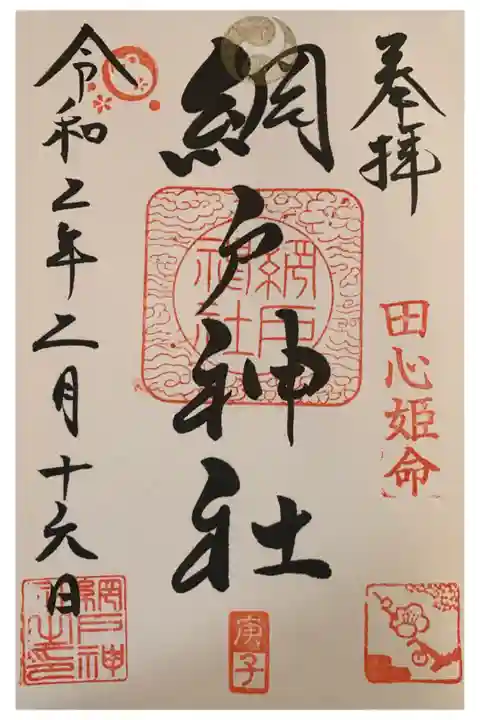 奉拝
田心姫命
網戸神社
網戸神社
庚子
令和二年二月十六日
網戸神